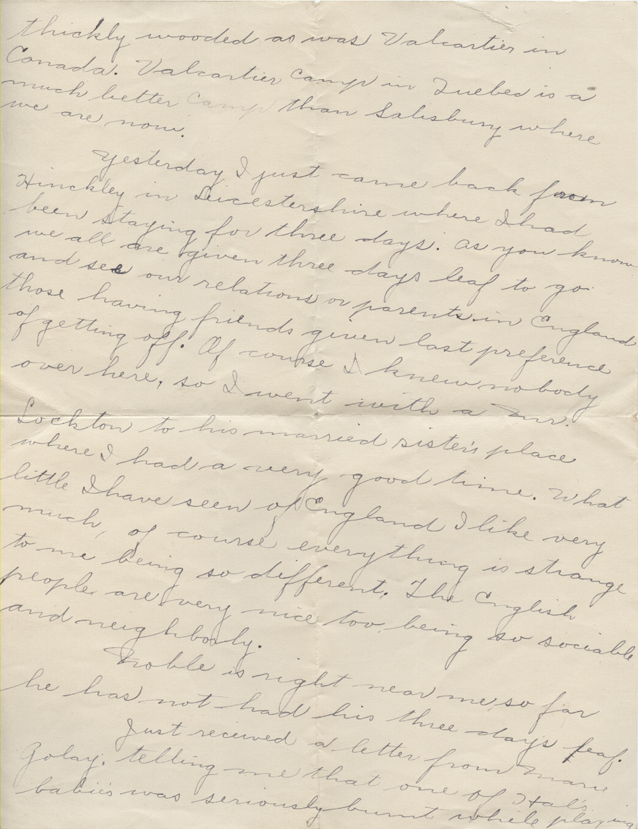 thickly wooded as was Valcartier in
Canada. Valcartier Camp in Quebec is a
much better Camp than Salisbury where
we are now.
Yesterday I just came back from
Hinckley in Leicestershire where I had
been staying for three days. As you know
we all are given three days leaf to go
and see our relations or parents in England
those having friends given last preference
of getting off. Of course I knew nobody
over here, so I went with a Mr.
Lockton to his married sister's place
where I had a very good time. What
little I have seen of England I like very
much, of course everything is strange
to me being so different. The English
people are very nice too being so sociable
and neighborly.
Noble is right near me so far
he has not had his three days leaf.
Just received a letter from Marie
Golay, telling me that one of Hal's
babies was seriously burnt while playing